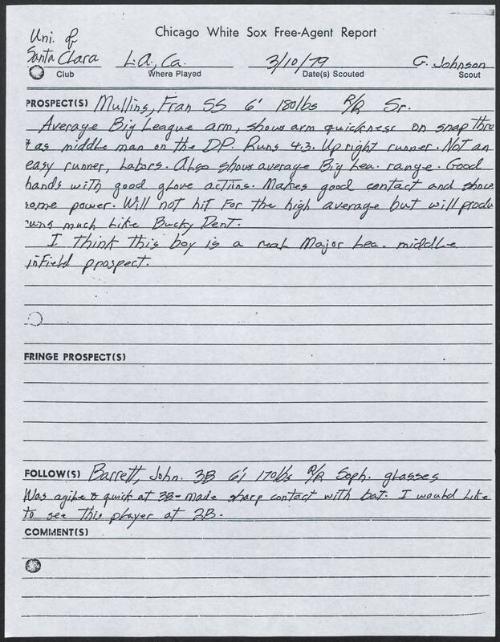 Chicago White Sox Free-Agent Report
Uni. of
Santa Clara L.A., Ca. 3/10/79 G. Johnson
Club Where Played Date(s) Scouted Scout
PROSPECT(S) Mullins, Fran SS 6' 180lbs R/R Sr.
Average Big League arm, shows arm quickness on snap thro
as middle man on the DP. Runs 4.3. Upright runner. Not an
easy runner, Labors. Also shows average Big Lea. range. Good
hands with good glove actions. Makes good contact and shows
ome power. Will not hit for the high average but will produ
uns much like Bucky Dent.
I think this boy is a real Major Lea. middle
infield prospect.
FRINGE PROSPECT(S)
FOLLOW(S) Barrett, John. 3B 6' 170lbs R/R Soph. glasses
Was agile & quick at 3B - made sharp contact with bat. I would like
to see this player at 2B.
COMMENT(S)